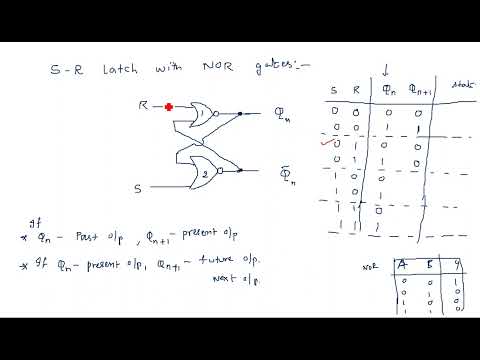 S-R latch with NOR gates:-
R
1
Qn
S
2
Q̅n
If
* Qn - Past o/p , Qn+1 - present o/p
* If Qn - present o/p, Qn+1 - future o/p.
Next o/p.
S R Qn Qn+1 State
0 0 0 0
0 0 1 1
0 1 0 0
0 1 1 0
1 0 0
1 0 1
1 1 0
1 1 1
NOR A B Y
0 0 1
0 1 0
1 0 0
1 1 0